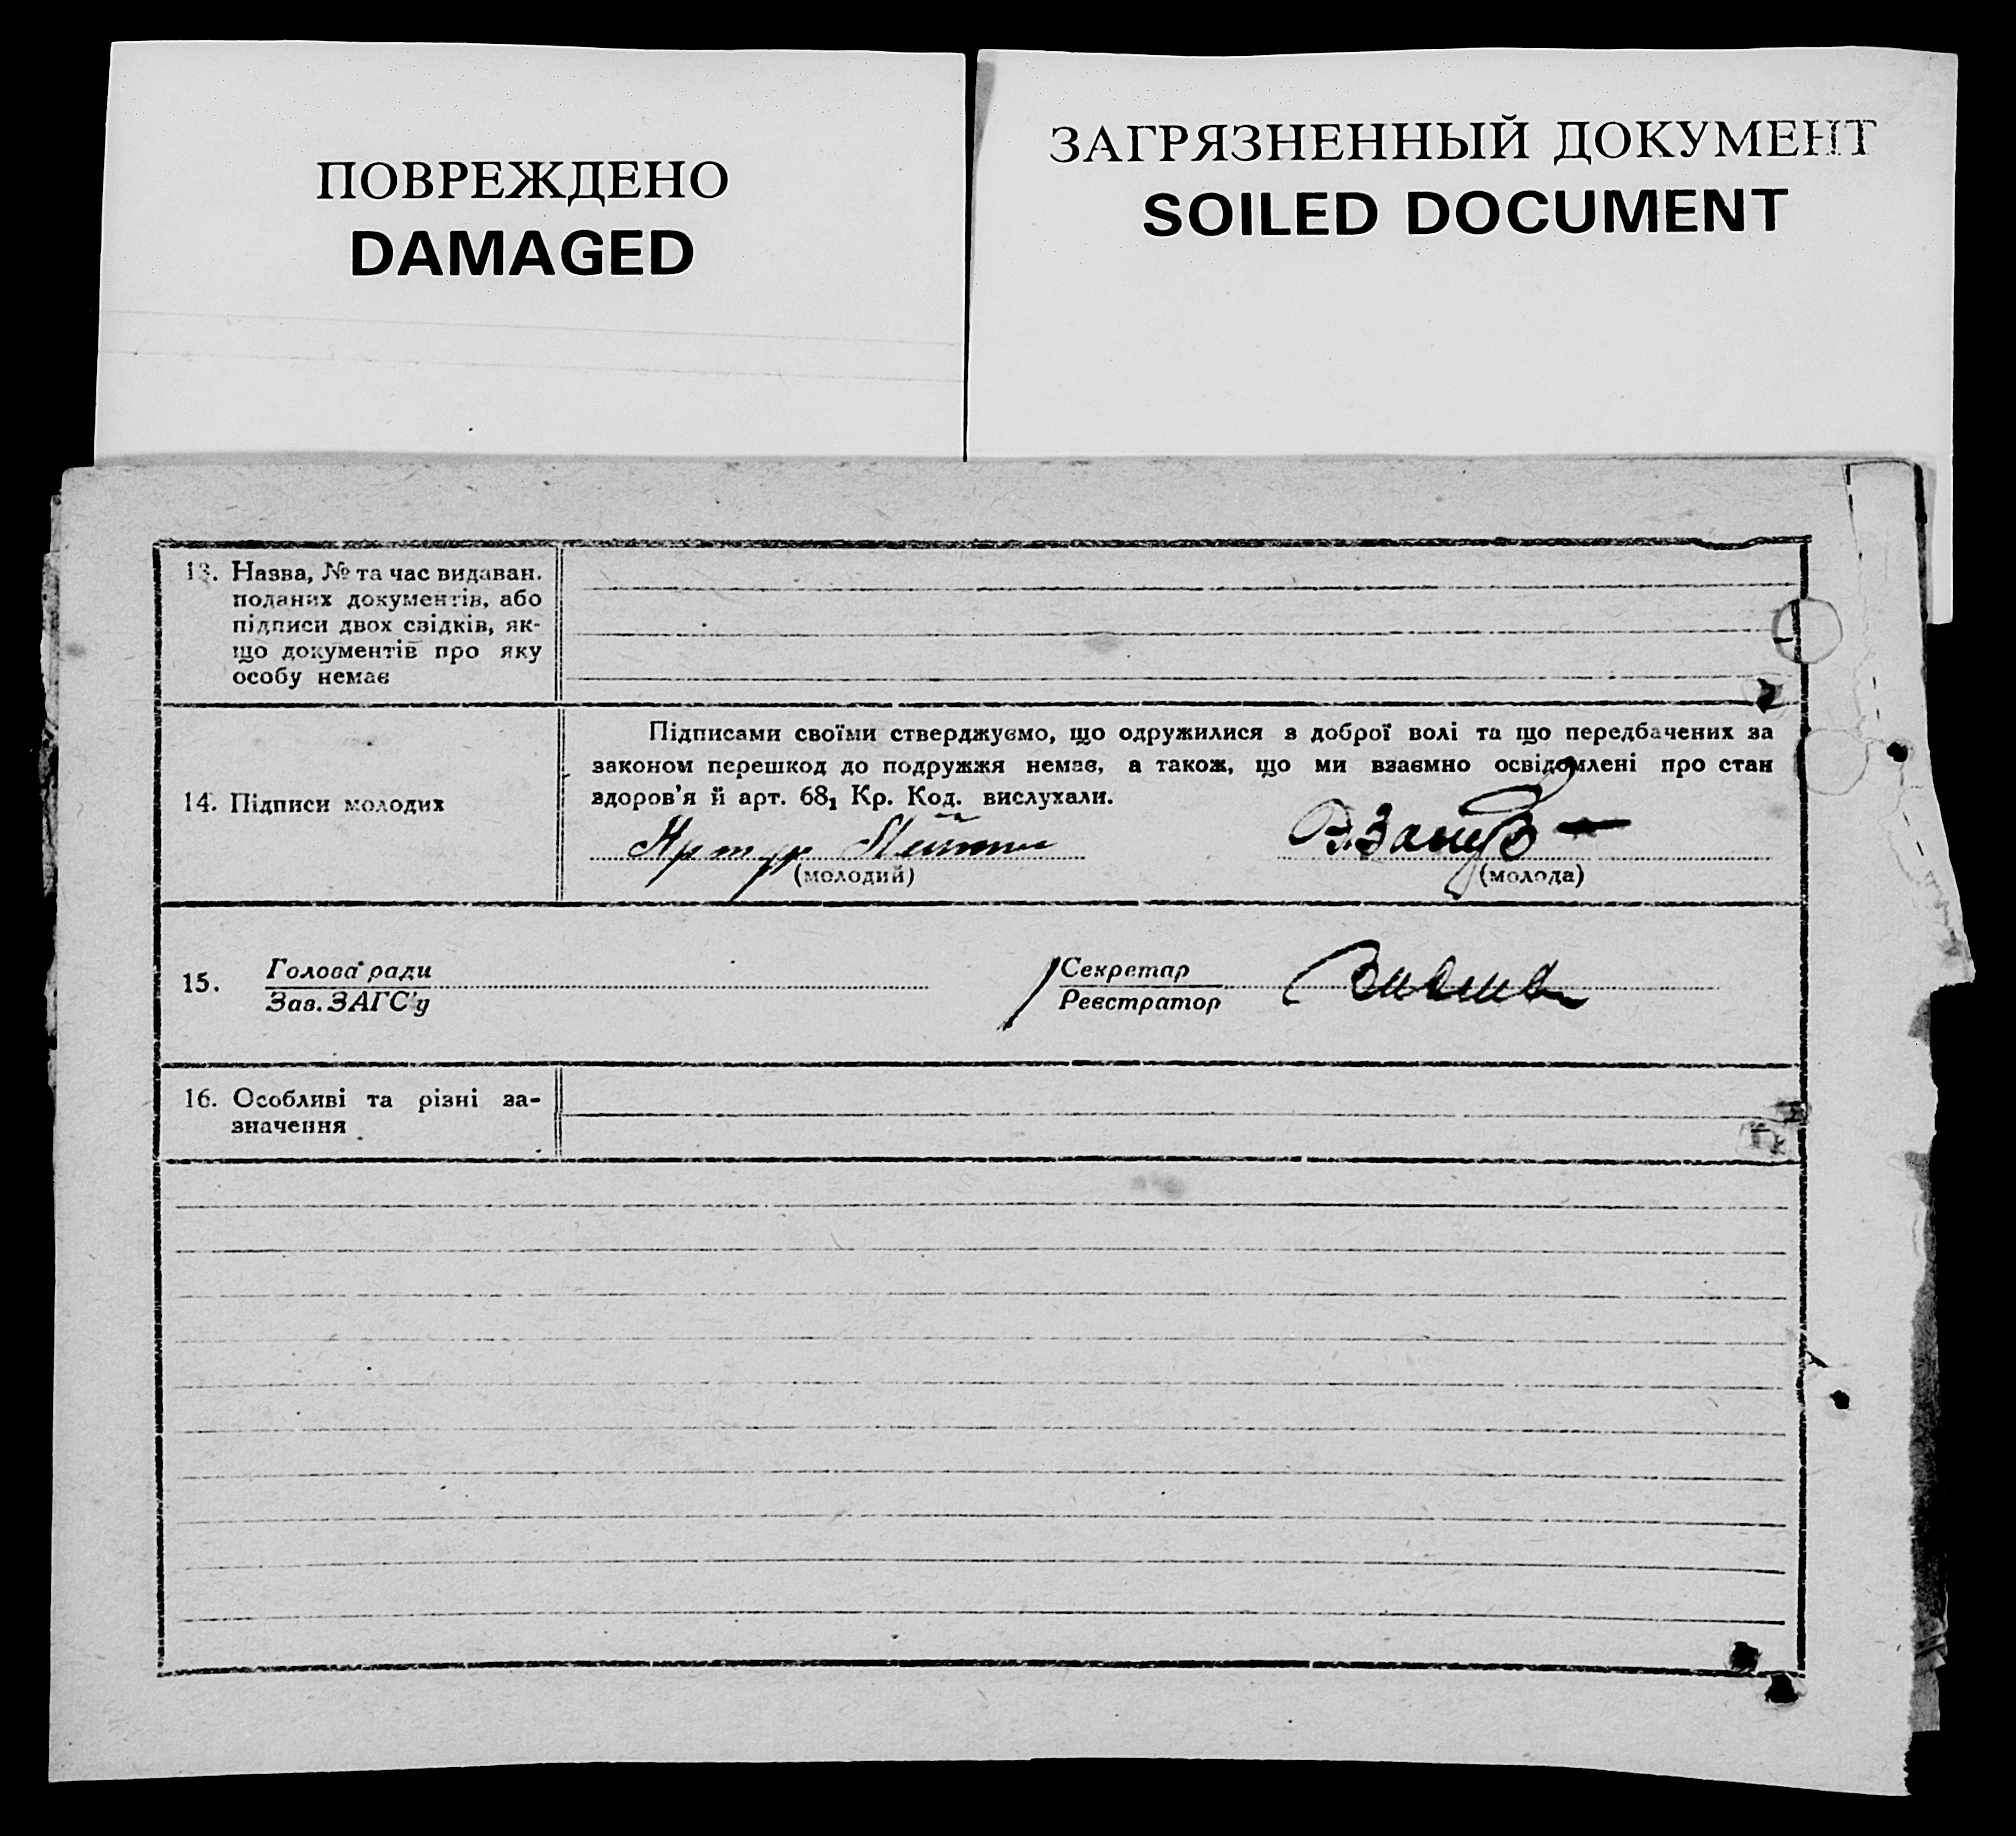 ПОВРЕЖДЕНО
DAMAGED
ЗАГРЯЗНЕННЫЙ ДОКУМЕНТ
SOILED DOCUMENT
13. Назва, № та час видаван.
поданих документів, або
підписи двох свідків, як-
що документів про яку
особу немає
14. Підписи молодих
Підписами своїми стверджуємо, що одружилися з доброї волі та що передбачених за
законом перешкод до подружжя немає, а також, що ми взаємно освідомлені про стан
здоров'я й арт. 68₁ Кр. Код. вислухали.
Артур
(молодий)
(молода)
15. Голова ради
Зав. ЗАГС'у
Секретар
Реєстратор
16. Особливі та різні за-
значення